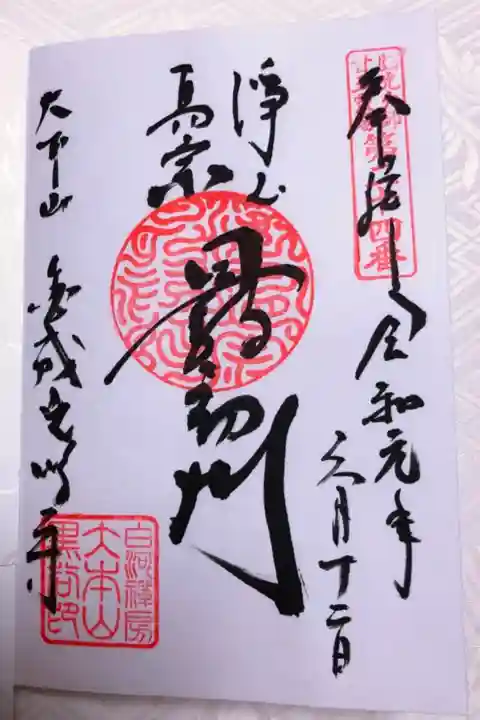 奉拝 令和元年
六月十二日
第二十四番
淨土
真宗
最初門
大本山 金戒光明寺
白河禪房
大本山
黒谷印